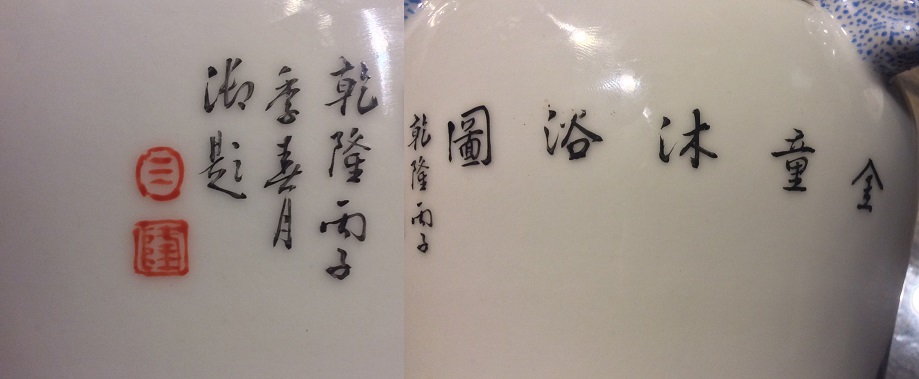 乾隆丙子
季春月
御題
隆
金童沐浴圖
乾隆丙子